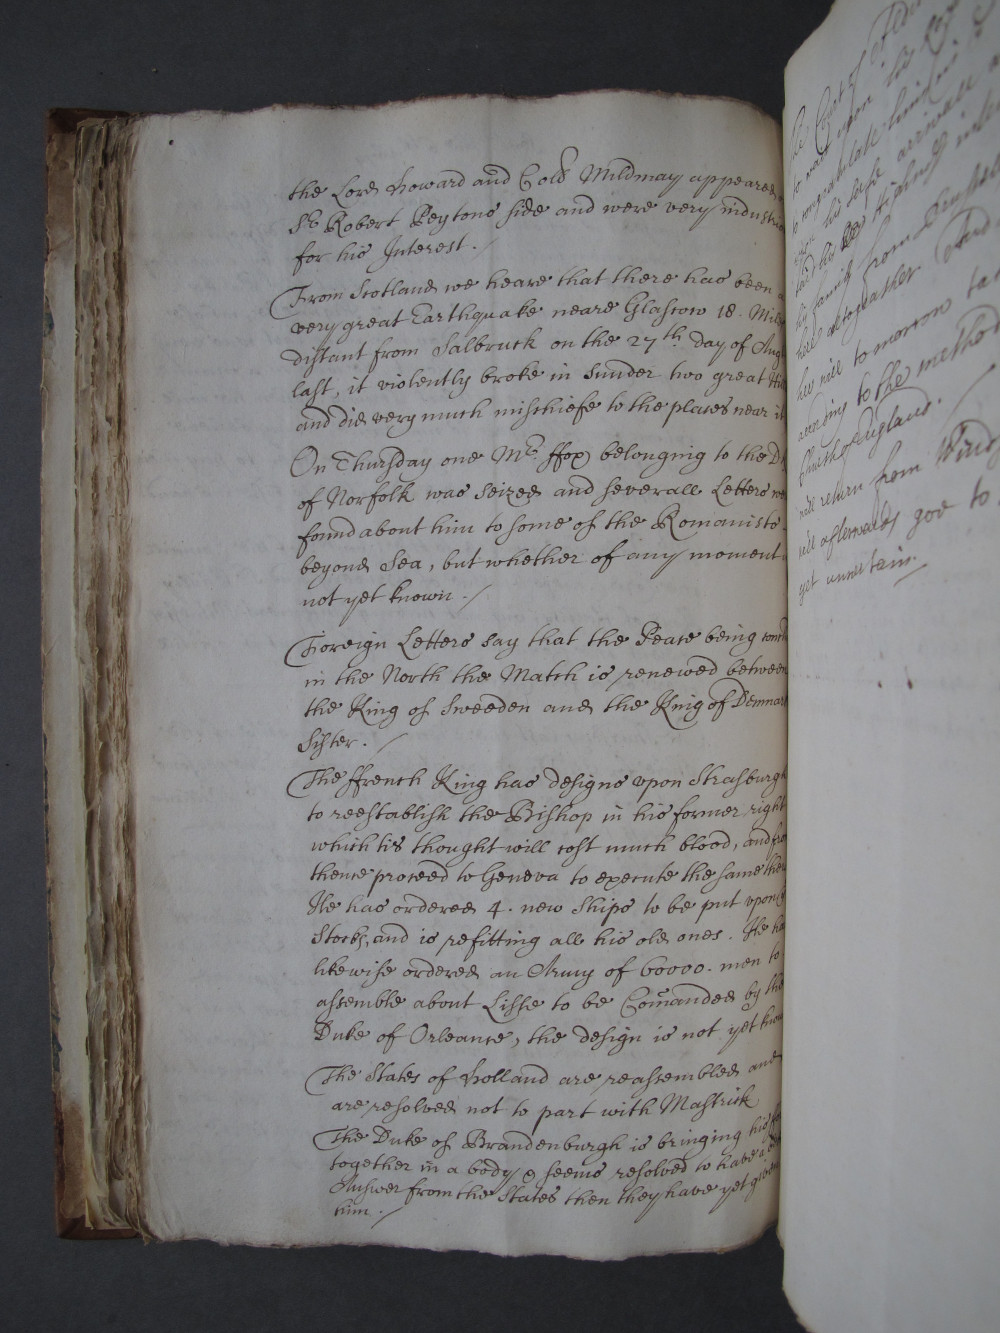 the Lord Howard and Coll Mildmay appeared
Sr. Robert Peytons side and were very
for his Interest.
From Scotland we heare that there has been a
very great Earthquake neare Glascow 18.
distant from Salbruck on the 27th. day of
last, it violently broke in sunder two great
and did very much mischiefe to the places near it
On Thursday one Mr. ffox belonging to the
of Norfolk was seized and severall Letters
found about him to some of the Romanists
beyond Sea, but whether of any moment
not yet known.
Foreign Letters say that the Peace being
in the North the Match is renewed between
the King of Sweeden and the King of Denmark
Sister.
The ffrench King has designs upon Strasburgh
to reestablish the Bishop in his former right
which tis thought will cost much blood, and
thence proceed to Geneva to execute the same
He has ordered 4. new Ships to be put upon
Stocks, and is refitting all his old ones. He
likewise ordered an Army of 60000. men to
assemble about Lisle to be Comanded by the
Duke of Orleance, the design is not yet
The States of Holland are reassembled and
are resolved not to part with Mastrick
The Duke of Brandenburgh is bringing his
together in a body & seems resolved to have a
Answer from the States then they have yet
him.
Court of
to wait upon his
to congratulate
upon his safe arrivall
his family from
here altogeather
will to morrow
according to the
Church of England.
will return from
will afterwards goe to
yet uncertain.